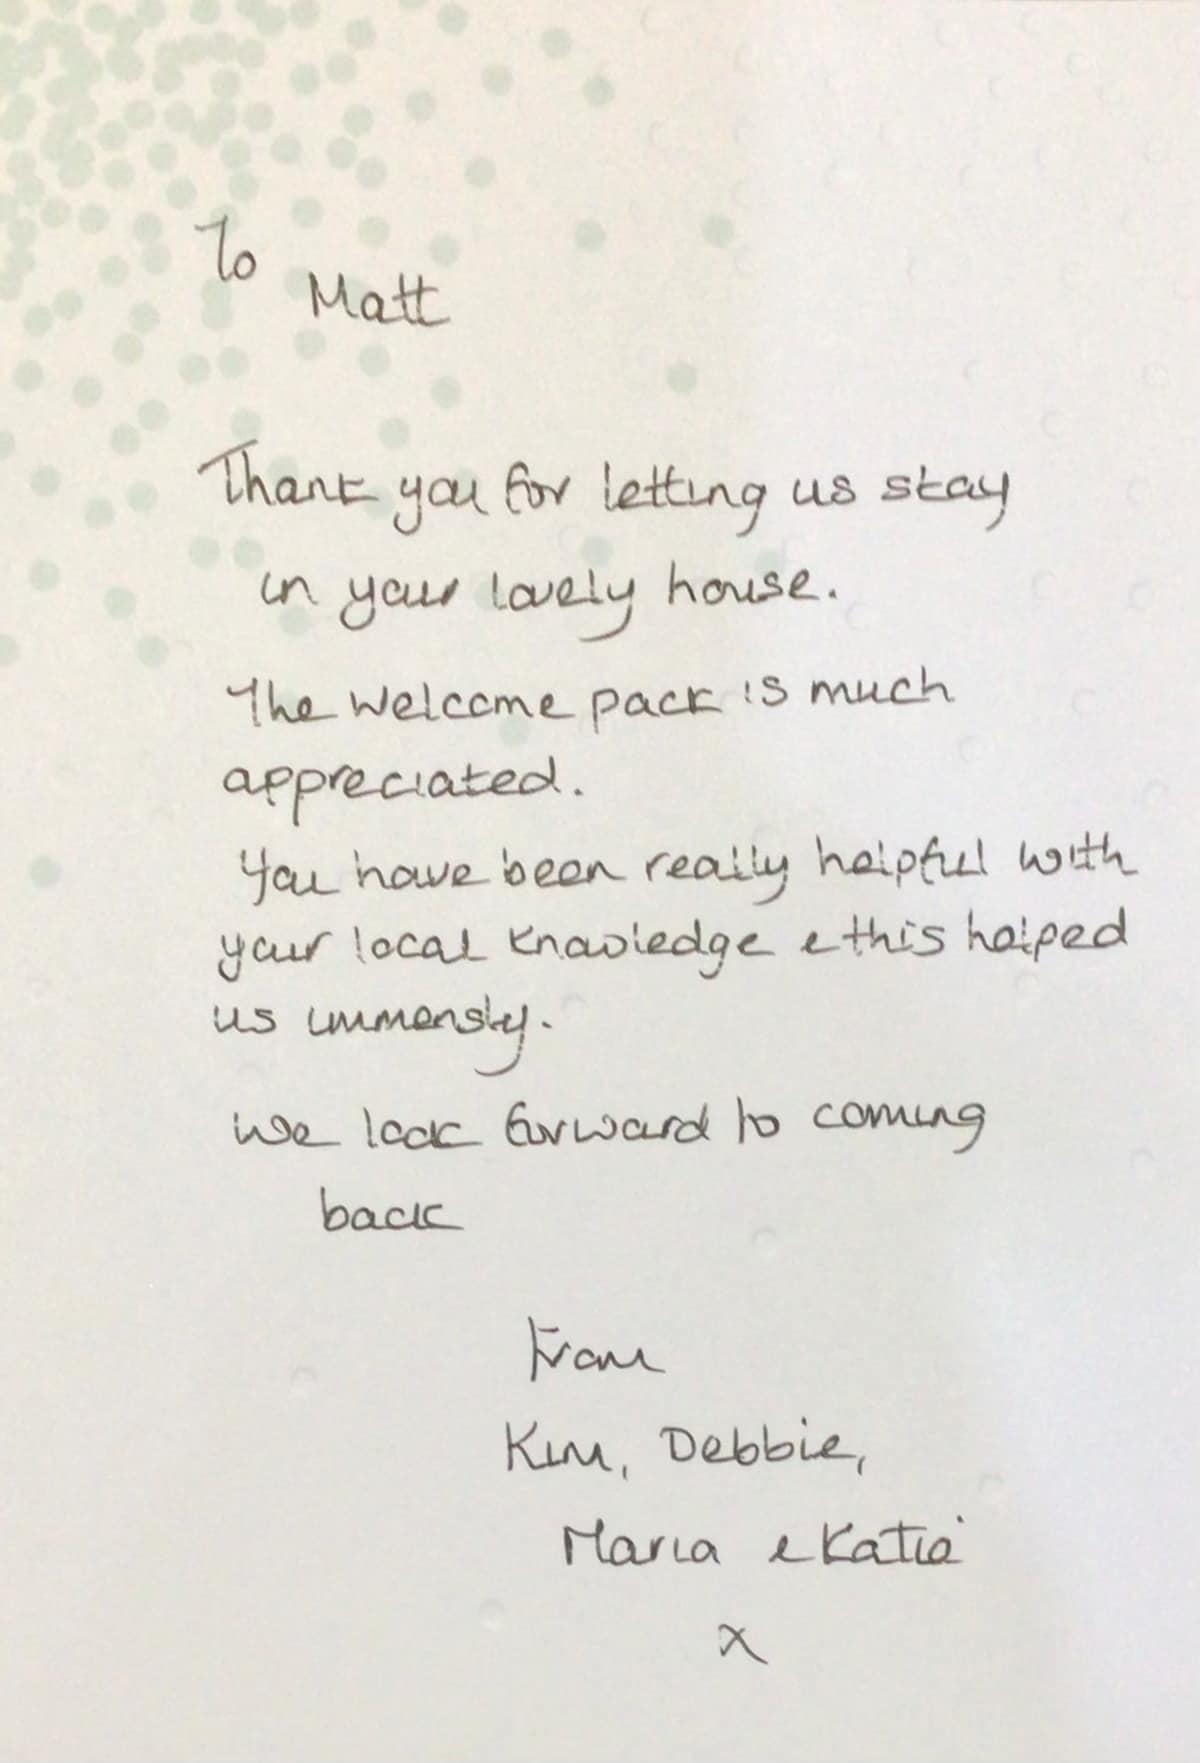 To
Matt
Thank you for letting us stay
in your lovely house.
The welcome pack is much
appreciated.
You have been really helpful with
your local knowledge & this helped
us immensly.
We look forward to coming
back
From
Kim, Debbie,
Maria & Katie
x